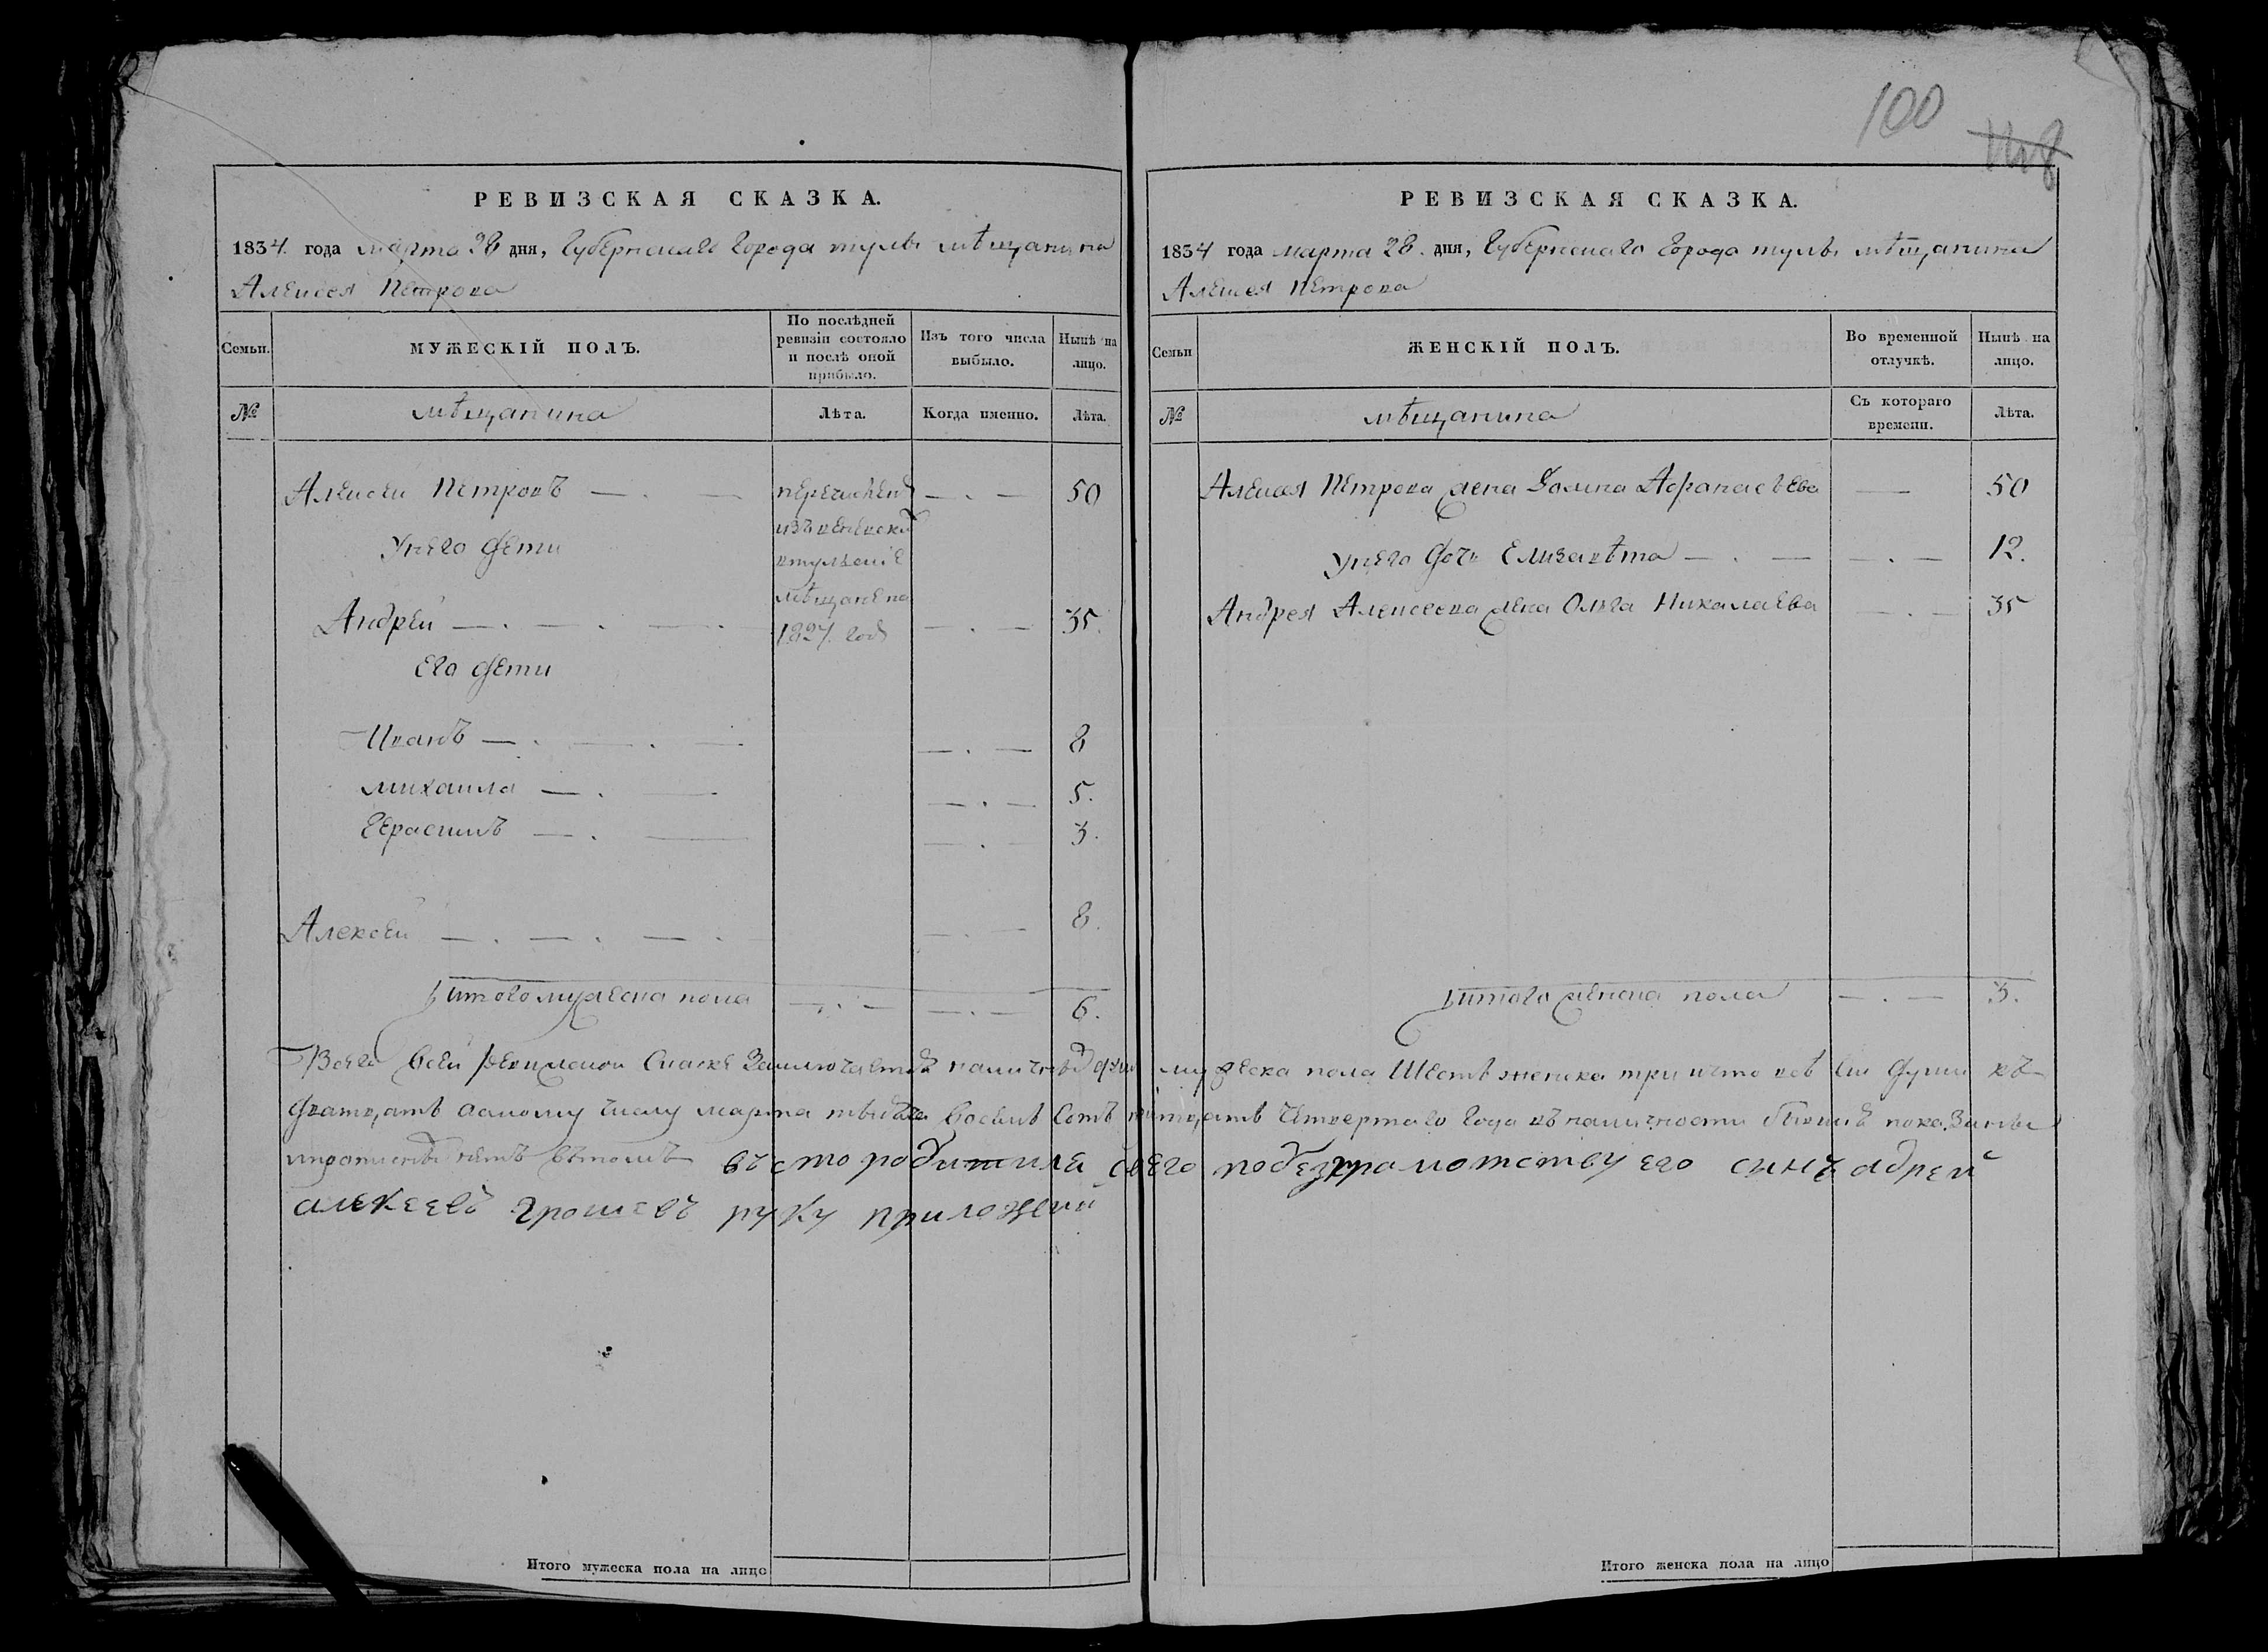 РЕВИЗСКАЯ СКАЗКА.
1834. года марта 28 дня, Губернскаго города тулы мѣщанина
Алексея Петрова
Семьи.
МУЖЕСКІЙ ПОЛЪ.
По послѣдней ревизіи состояло и послѣ оной прибыло.
Изъ того числа выбыло.
Нынѣ на лицо.
№
мѣщанина
Лѣта.
Когда именно.
Лѣта.
Алексеи Петровъ 50
перечислен
изъ
втулские
мѣщане на
1827. год
Унего дети
Андрей 35.
Его дети
Иванъ 8
михаила 5.
Герасимъ 3.
Алексеи 8.
итого мужеска пола 6.
100
118
РЕВИЗСКАЯ СКАЗКА.
1834 года марта 28. дня, Губернскаго города тулы мѣщанина
Алексея Петрова
Семьи
ЖЕНСКІЙ ПОЛЪ.
Во временной отлучкѣ.
Нынѣ на лицо.
№
мѣщанина
Съ котораго времени.
Лѣта.
Алексея Петрова жена Афанасьева 50
Унего дочь Елизавѣта 12.
Андрея Алексеева жена Олга Николаева 35
итого женска пола 3.
Всего всей Ревизской Сказке Заключается наличныхъ душ мужеска пола Шесть женска три ичто всѣ Сии души къ
дватцать осмому числу марта тысеча восемь сотъ тритцать четвертаго года въ наличности показаны
нѣтъ вътомъ въсто родитиля своего побезграмотству его сынъ адрей
алекеевъ грошевъ руку приложил
Итого мужеска пола на лицо
Итого женска пола на лицо